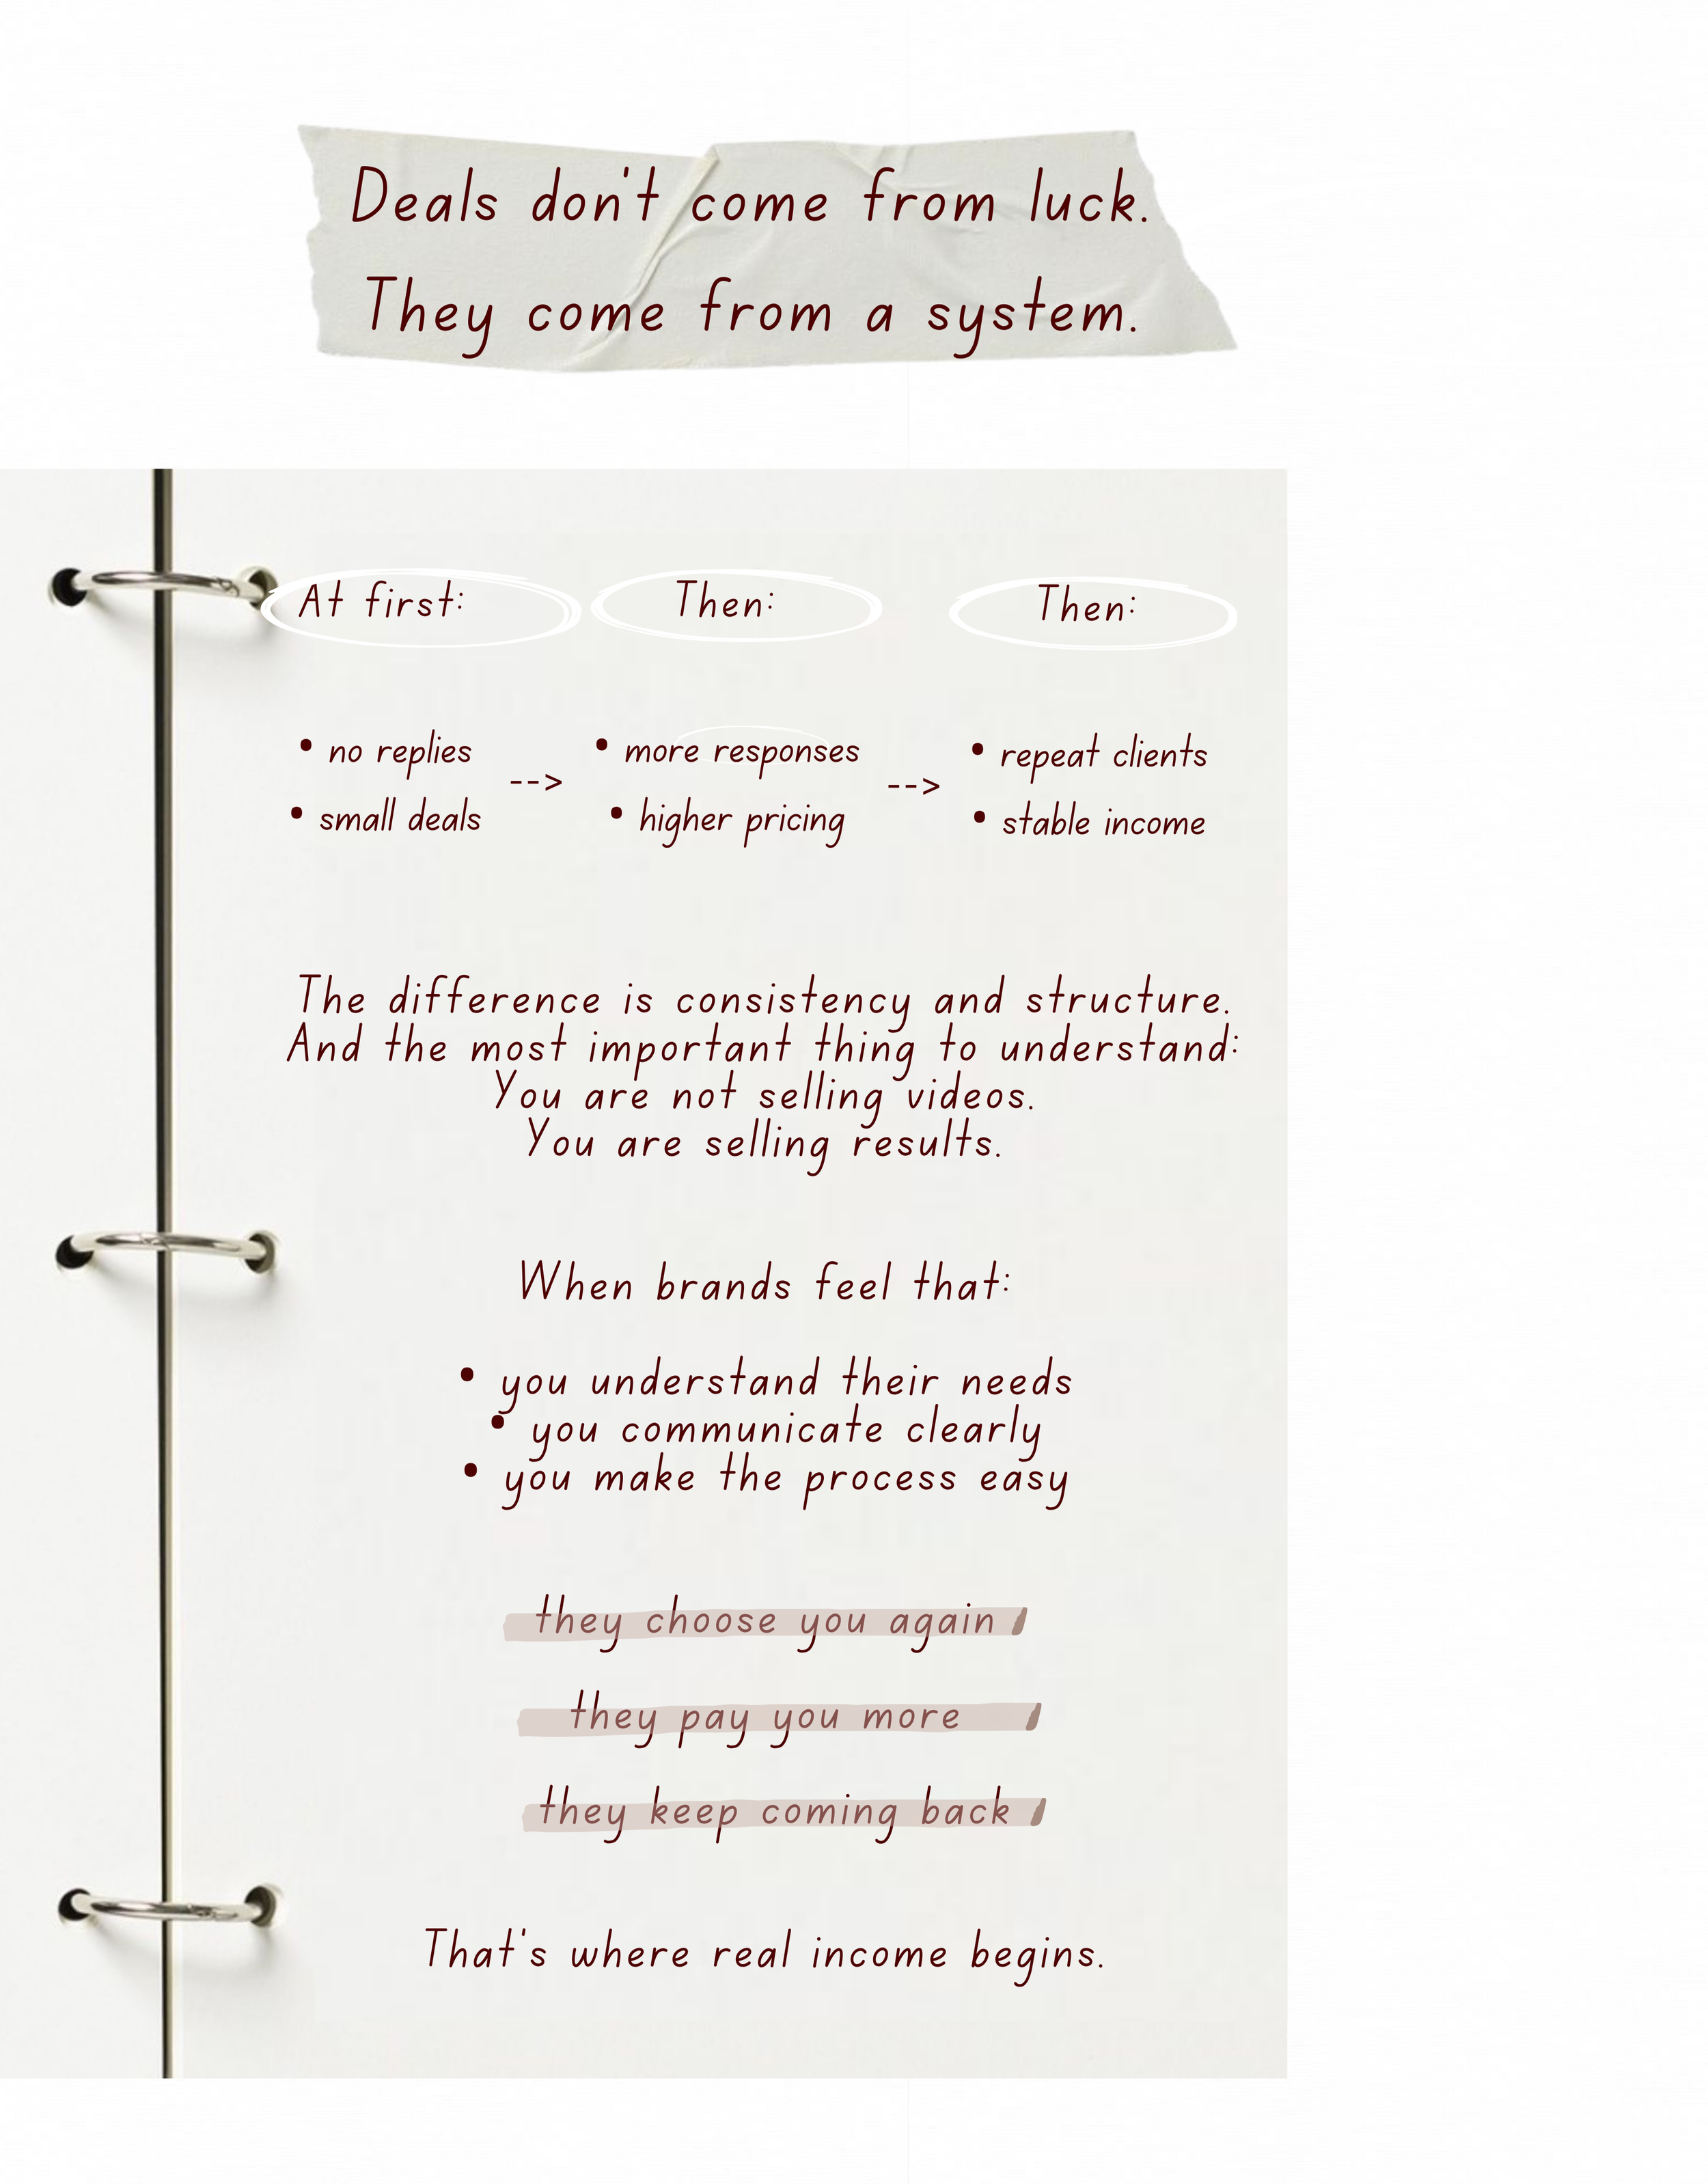 Deals don't come from luck.
They come from a system.
At first:
Then:
Then:
• no replies
• small deals
-->
• more responses
• higher pricing
-->
• repeat clients
• stable income
The difference is consistency and structure.
And the most important thing to understand:
You are not selling videos.
You are selling results.
When brands feel that:
• you understand their needs
• you communicate clearly
• you make the process easy
they choose you again
they pay you more
they keep coming back
That's where real income begins.